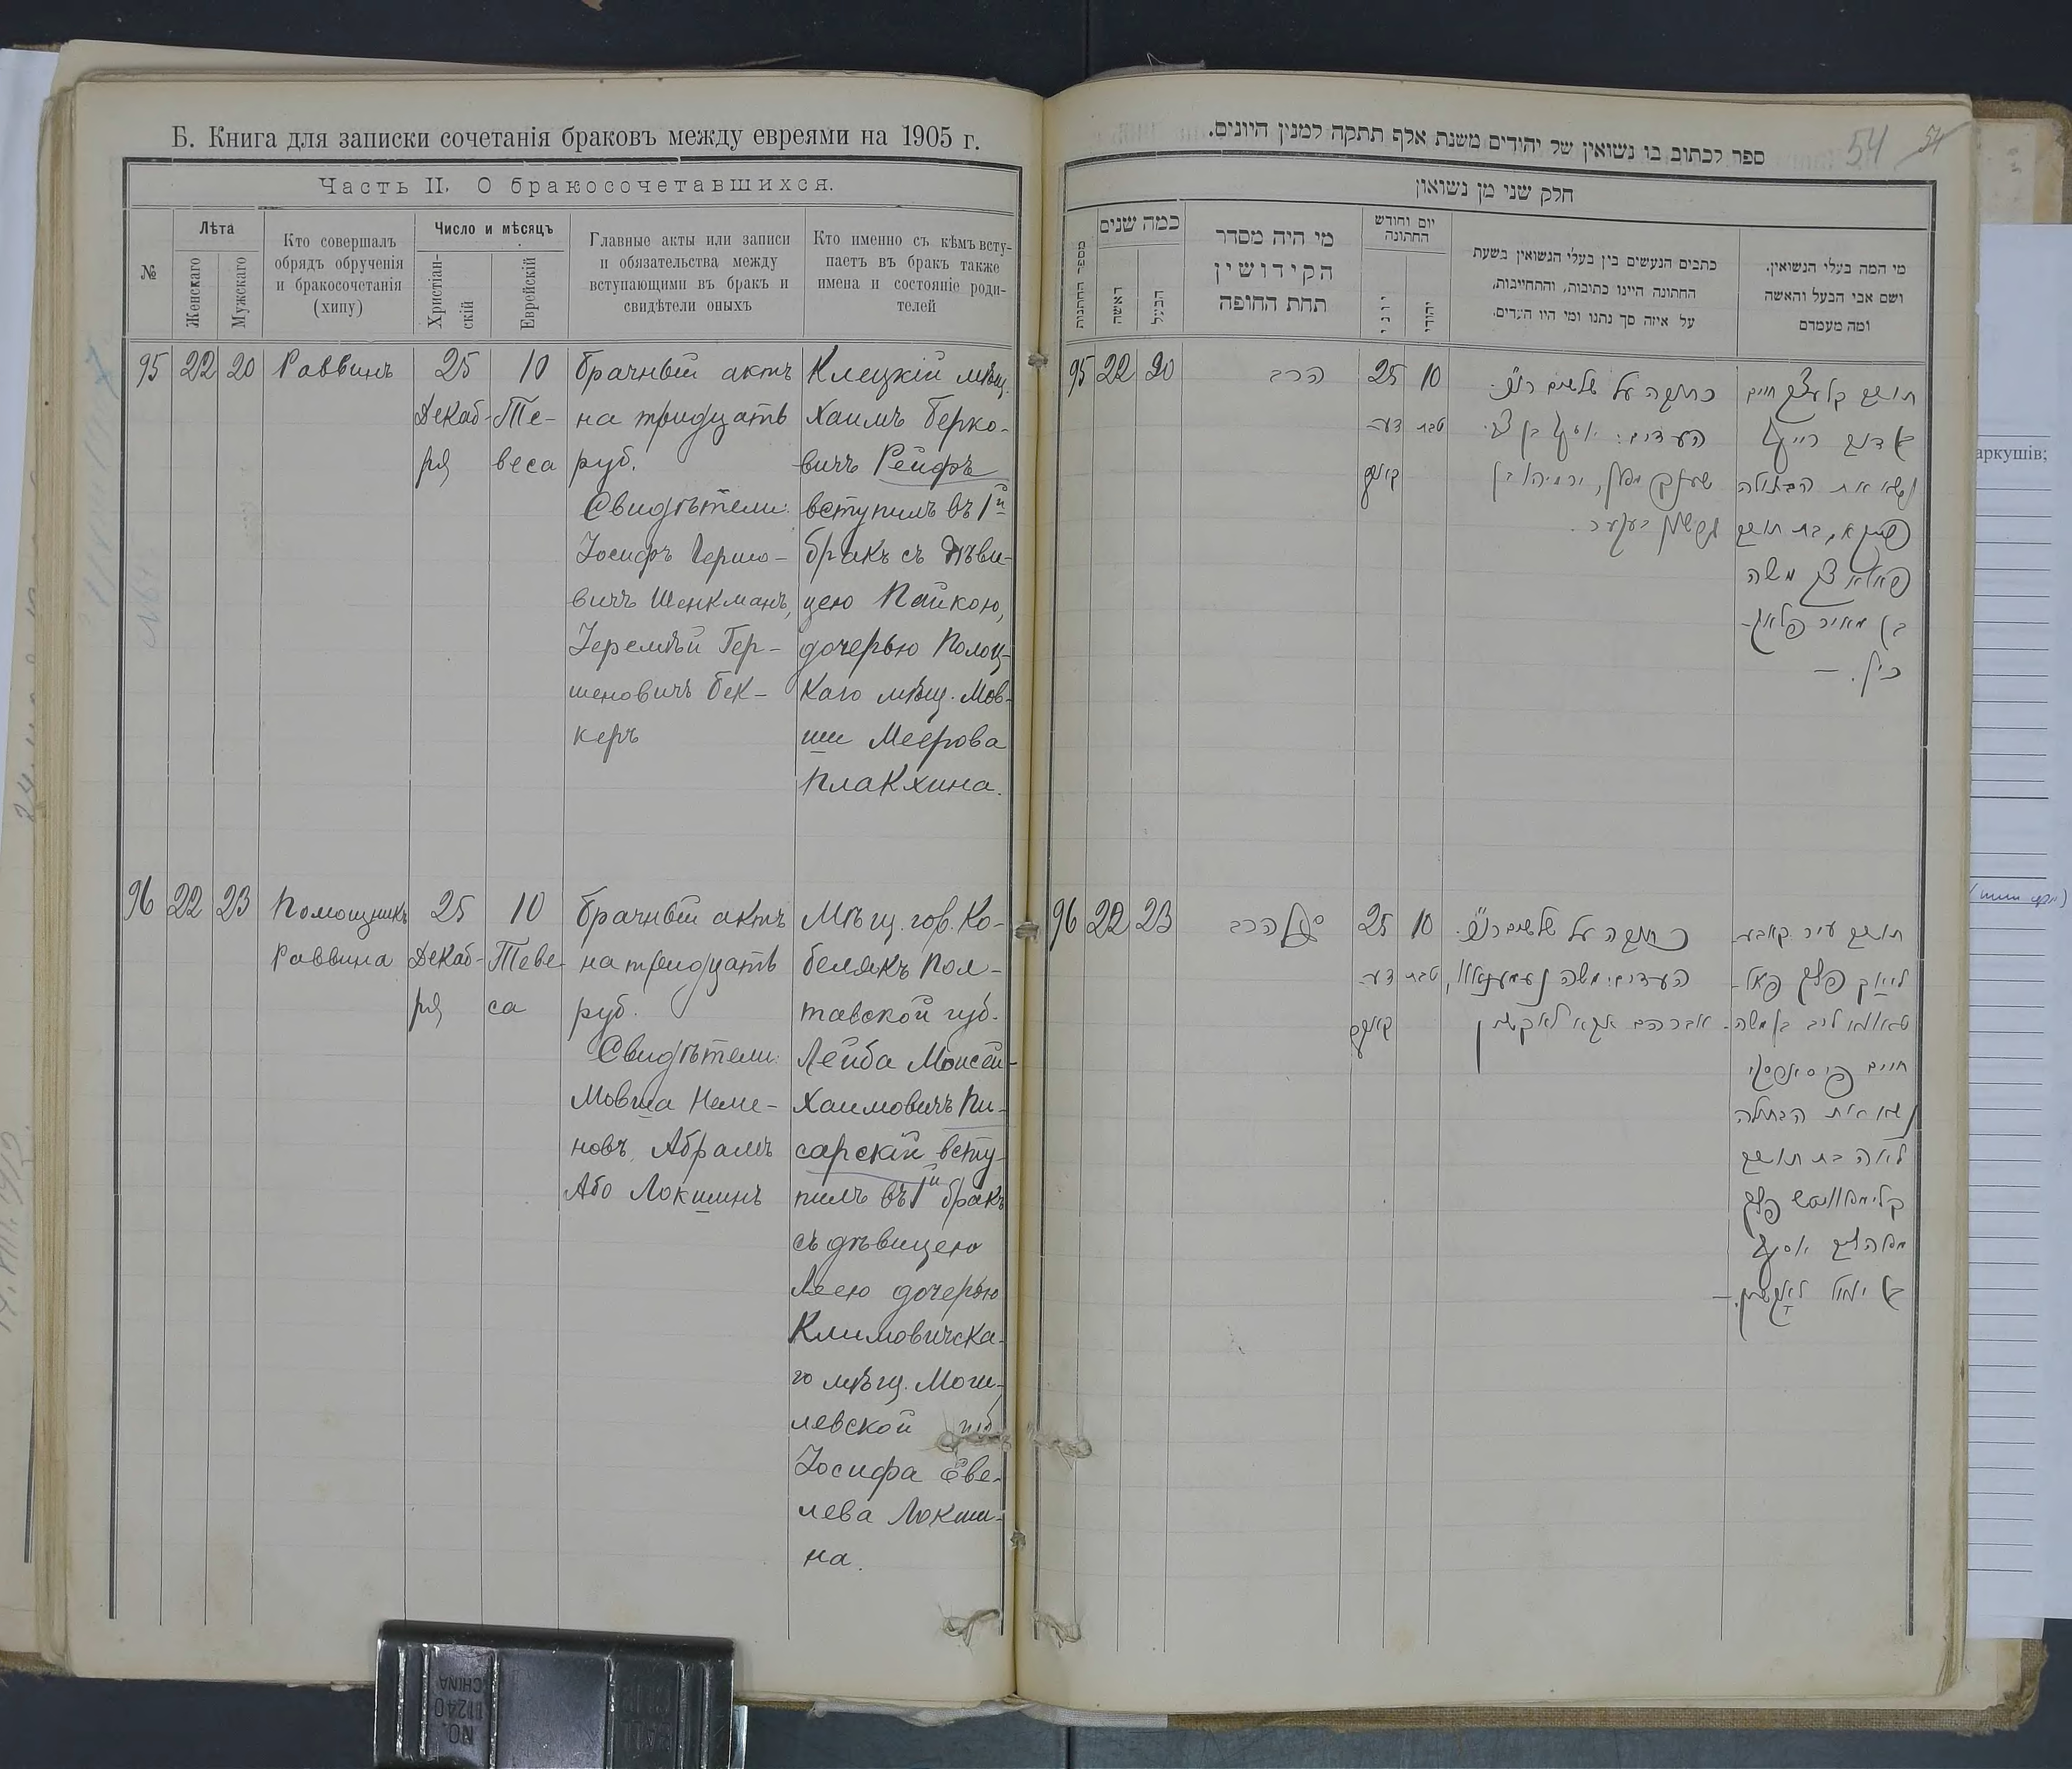 Б. Книга для записки сочетанія браковъ между евреями на 1905 г.
Часть II. О бракосочетавшихся.
№
Лѣта
Женскаго
Мужскаго
Кто совершалъ
обрядъ обрученія
и бракосочетанія
(хипу)
Число и мѣсяцъ
Христіан-
скій
Еврейскій
Главные акты или записи
и обязательства между
вступающими въ бракъ и
свидѣтели оныхъ
Кто именно съ кѣмъ всту-
паетъ въ бракъ также
имена и состояніе роди-
телей
95
22
20
Раввинъ
25
Декаб-
ря
10
Те-
веса
Брачный актъ
на тридцать
руб.
Свидѣтели:
Іосифъ Герше-
вичъ Шенкманъ,
Іеремѣй Гер-
шеновичъ Бек-
керъ
Клецкій мѣщ.
Хаимъ Берко-
вичъ Рейфъ
вступилъ въ 1й
бракъ съ дѣви-
цею Пайкою,
дочерью Полоц-
каго мѣщ. Мов-
ши Меерова
Плакхина.
96
22
23
Помощникъ
Раввина
25
Декаб-
ря
10
Теве-
са
Брачный актъ
на тридцать
руб.
Свидѣтели:
Мовша Неме-
новъ, Абрамъ
Або Локшинъ
Мѣщ. гор. Ко-
белякъ Пол-
тавской губ.
Лейба Моисей-
Хаимовичъ Пи-
сарскій всту-
пилъ въ 1й бракъ
съ дѣвицею
Леею дочерью
Климовичска-
го мѣщ. Моги-
левской губ.
Іосифа Еве-
лева Локши-
на.
ספר לכתוב בו נשואין של יהודים משנת אלף תתקה למנין היונים.
54
חלק שני מן נשואון
מספר החתונות
כמה שנים
האשה
הבעל
מי היה מסדר
הקידושין
תחת החופה
יום וחודש
החתונה
יוני
יהודי
כתבים הנעשים בין בעלי הנשואין בשעת
החתונה היינו כתיבות, והתחייבות,
על איזה סך נתנו ומי היו העדים.
מי המה בעלי הנשואין.
ושם אבי הבעל והאשה
ומה מעמדם
95
22
20
הרב
25
דע-
קאבר
10
טבת
כתובה על שלשים רו"כ.
העדים: יוסף בן צבי
שענקמאן, ירמיהו בן
גרשון בעקער.
תושב קלעצק חיים
בן דוב רייף
נשא את הבתולה
פייקא, בת תושב
פאלאצק משה
בן מאיר פלאק-
כין. —
96
22
23
הרב
25
דע-
קאבר
10
טבת
כתובה על שלשים רו"כ.
העדים: משה נעמענאוו,
אברהם אבא לאקשין
תושב עיר קאבע-
ליאק פלך פאל-
טאווא ליב בן משה-
חיים פיסארסקי
נשא את הבתולה
לאה בת תושב
קלימאוויטש פלך
מאהליב יוסף
לאקשין. —
аркушів;
NO.
11240
CHINA